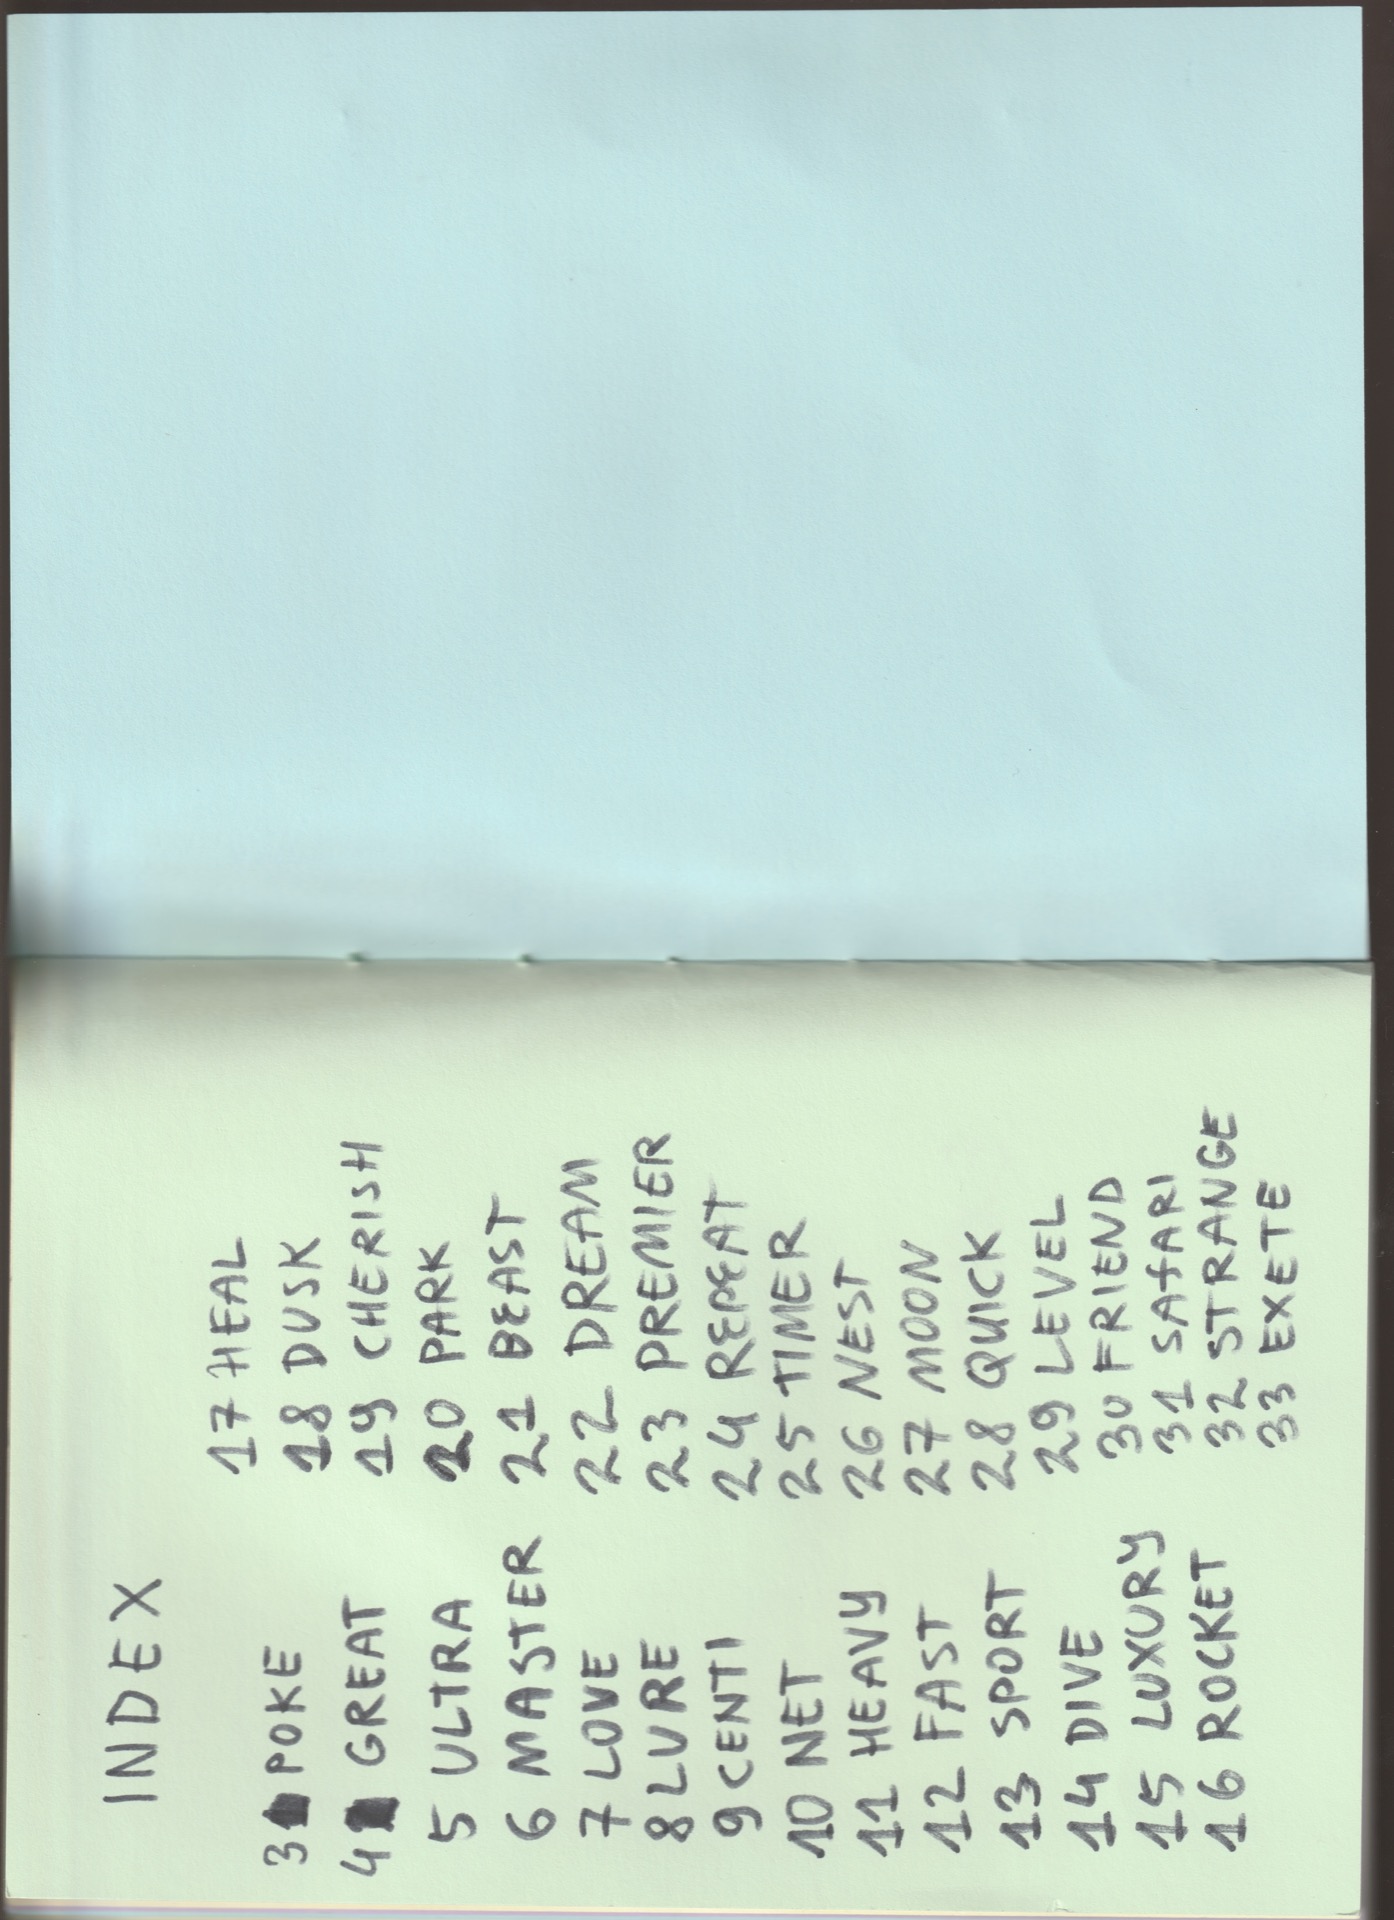 INDEX
3 POKE
4 GREAT
5 ULTRA
6 MASTER
7 LOVE
8 LURE
9 CENTI
10 NET
11 HEAVY
12 FAST
13 SPORT
14 DIVE
15 LUXURY
16 ROCKET
17 HEAL
18 DUSK
19 CHERISH
20 PARK
21 BEAST
22 DREAM
23 PREMIER
24 REPEAT
25 TIMER
26 NEST
27 MOON
28 QUICK
29 LEVEL
30 FRIEND
31 SAfARI
32 STRANGE
33 EXETE